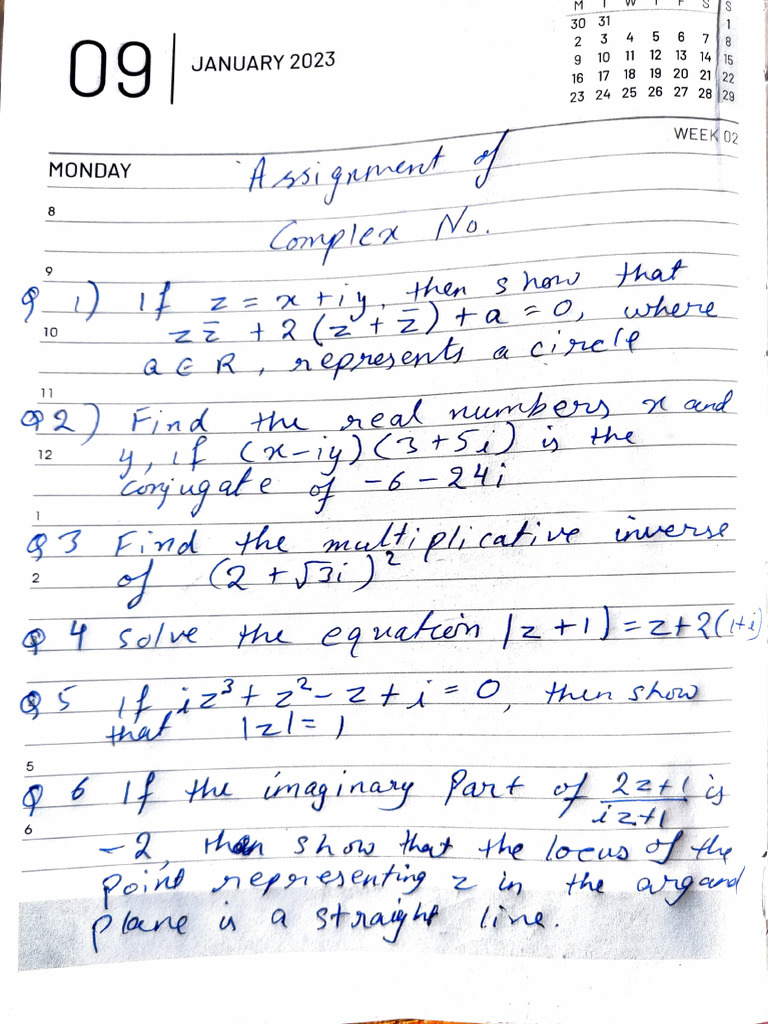 M T W T F S S
30 31 1
2 3 4 5 6 7 8
9 10 11 12 13 14 15
16 17 18 19 20 21 22
23 24 25 26 27 28 29
09 JANUARY 2023
WEEK 02
MONDAY
Assignment of
8
Complex No.
9
Q 1) If z = x + iy, then show that
10 z z̅ + 2 (z + z̅) + a = 0, where
a ∈ R, represents a circle
11
Q2) Find the real numbers x and
12 y, if (x-iy) (3+5i) is the
conjugate of -6 - 24i
1
Q 3 Find the multiplicative inverse
2 of (2 + √3i)²
Q 4 solve the equation |z+1| = z+2(1+i)
Q 5 If iz³ + z² - z + i = 0, then show
that |z| = 1
5
Q 6 If the imaginary Part of (2z+1)/(iz+1) is
6
-2, then show that the locus of the
point representing z in the argand
plane is a straight line.